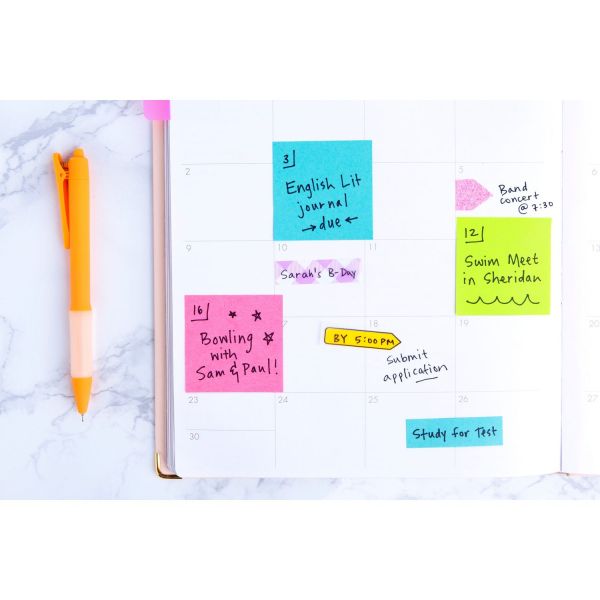 2
3
English Lit
journal
→due←
5
Band
concert
@ 7:30
9
10
Sarah's B-Day
11
12
Swim Meet
in Sheridan
16
Bowling
with
Sam & Paul!
17
BY 5:00PM
18
Submit
application
19
23
24
25
26
Study for Test
30